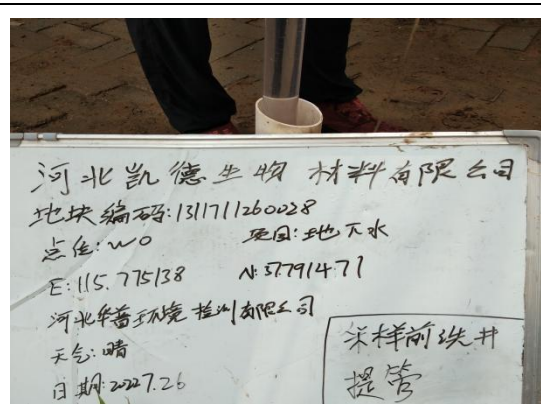 河北凯德生物材料有限公司
地块编码:1311711260028
点位:W0 项目:地下水
E:115.775138 N:37.791471
河北华普环境检测有限公司
天气:晴
日期:2022.7.26
采样前洗井
提管